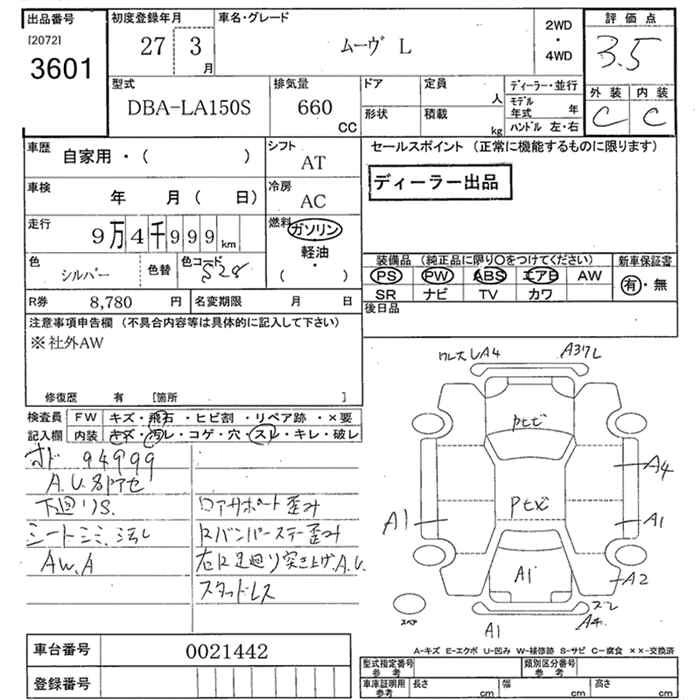 出品番号
[2072]
3601
初度登録年月
27 3
月
車名・グレード
ムーヴ L
2WD
・
4WD
評価点
3.5
外装 内装
C C
型式
DBA-LA150S
排気量
660
CC
ドア
形状
定員
人
積載
kg
ディーラー・並行
モデル年式 年
ハンドル 左・右
車歴
自家用・( )
シフト
AT
車検
年 月( 日)
冷房
AC
走行
9万4千999km
燃料
ガソリン
軽油
・
( )
色
シルバー
色替
色コード
S28
R券 8,780 円
名変期限 月 日
セールスポイント (正常に機能するものに限ります)
ディーラー出品
装備品 (純正品に限り○をつけてください)
PS PW ABS エアB AW
SR ナビ TV カワ
新車保証書
有・無
後日品
注意事項申告欄 (不具合内容等は具体的に記入して下さい)
※社外AW
修復歴 有 [箇所 ]
検査員
記入欄
FW キズ・飛石・ヒビ割・リペア跡・×要
内装 キズ・汚レ・コゲ・穴・スレ・キレ・破レ
94999
下廻りS.
AW.A
ロアサポート歪み
スタッドレス
A37L
A4
A1
A1
A2
A4
A1
A1
スペア
A-キズ E-エクボ U-凹み W-補修跡 S-サビ C-腐食 ××-交換済
車台番号 0021442
登録番号
型式指定番号
参考
類別区分番号
参考
車庫証明用
参考
長さ cm
幅 cm
高さ cm